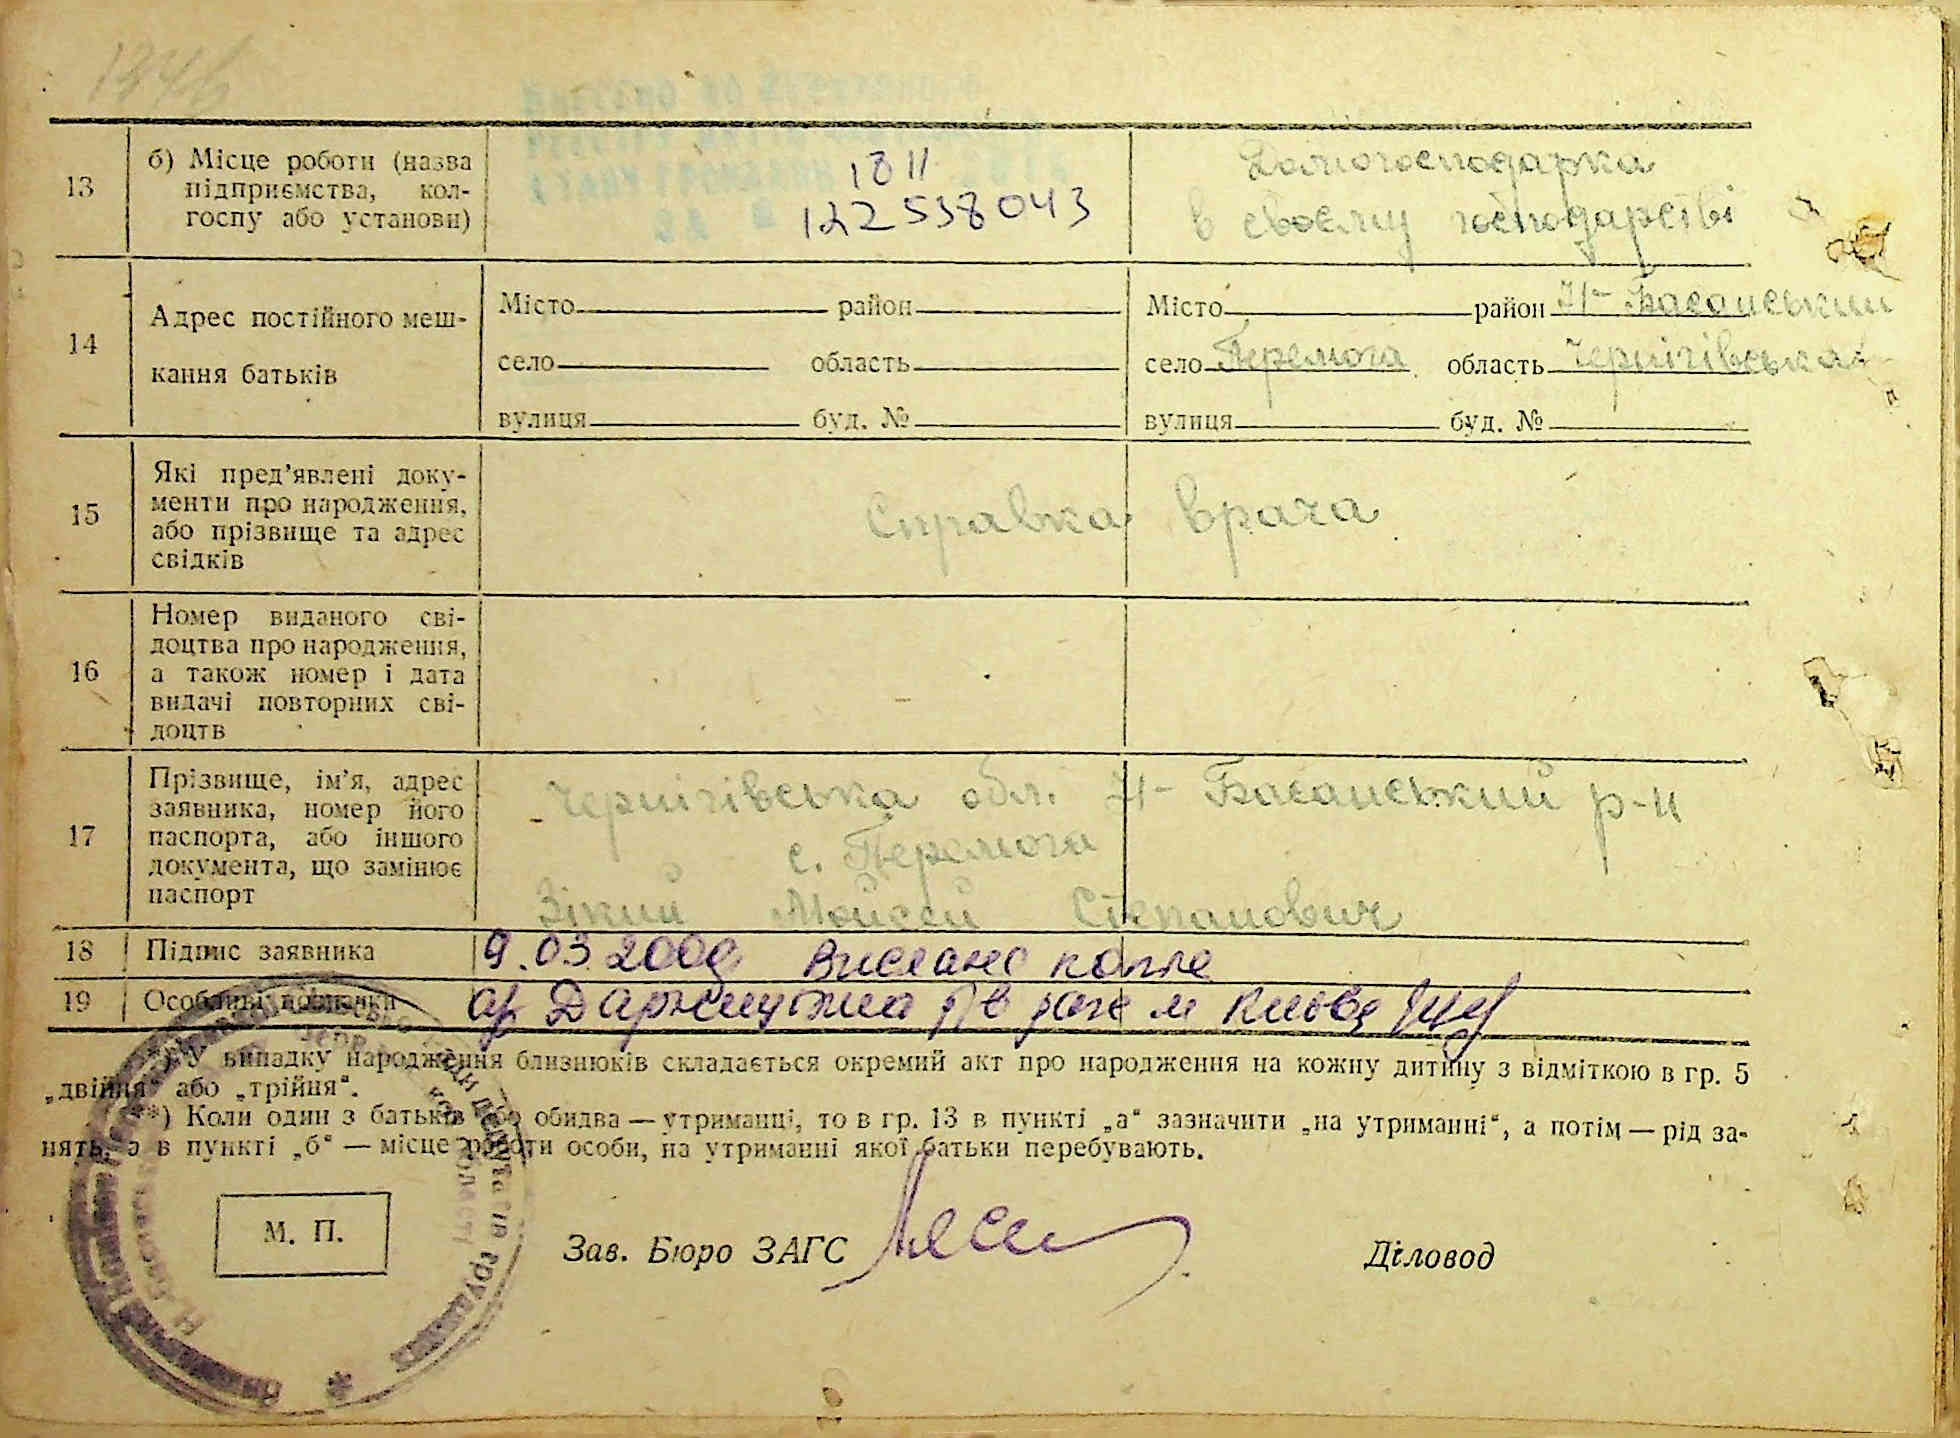 1946
13
б) Місце роботи (назва
підприємства, кол-
госпу або установи)
1811
122538043
Домогосподарка
в своєму господарстві
14
Адрес постійного меш-
кання батьків
Місто район
село область
вулиця буд. №
Місто район Н-Басанський
село Перемога область Чернігівська
вулиця буд. №
15
Які пред’явлені доку-
менти про народження,
або прізвище та адрес
свідків
Справка врача
16
Номер виданого сві-
доцтва про народження,
а також номер і дата
видачі повторних сві-
доцтв
17
Прізвище, ім’я, адрес
заявника, номер його
паспорта, або іншого
документа, що замінює
паспорт
Чернігівська обл. Н-Басанський р-н
с. Перемога
Зікий Мойсей Степанович
18 Підпис заявника
9.03.2000 Вислано копію
19 Особливі позначки
м Києва
*) У випадку народження близнюків складається окремий акт про народження на кожну дитину з відміткою в гр. 5
„двійня“ або „трійня“.
**) Коли один з батьків або обидва — утриманці, то в гр. 13 в пункті „а“ зазначити „на утриманні“, а потім — рід за-
нять, а в пункті „б“ — місце роботи особи, на утриманні якої батьки перебувають.
М. П.
Зав. Бюро ЗАГС
Діловод